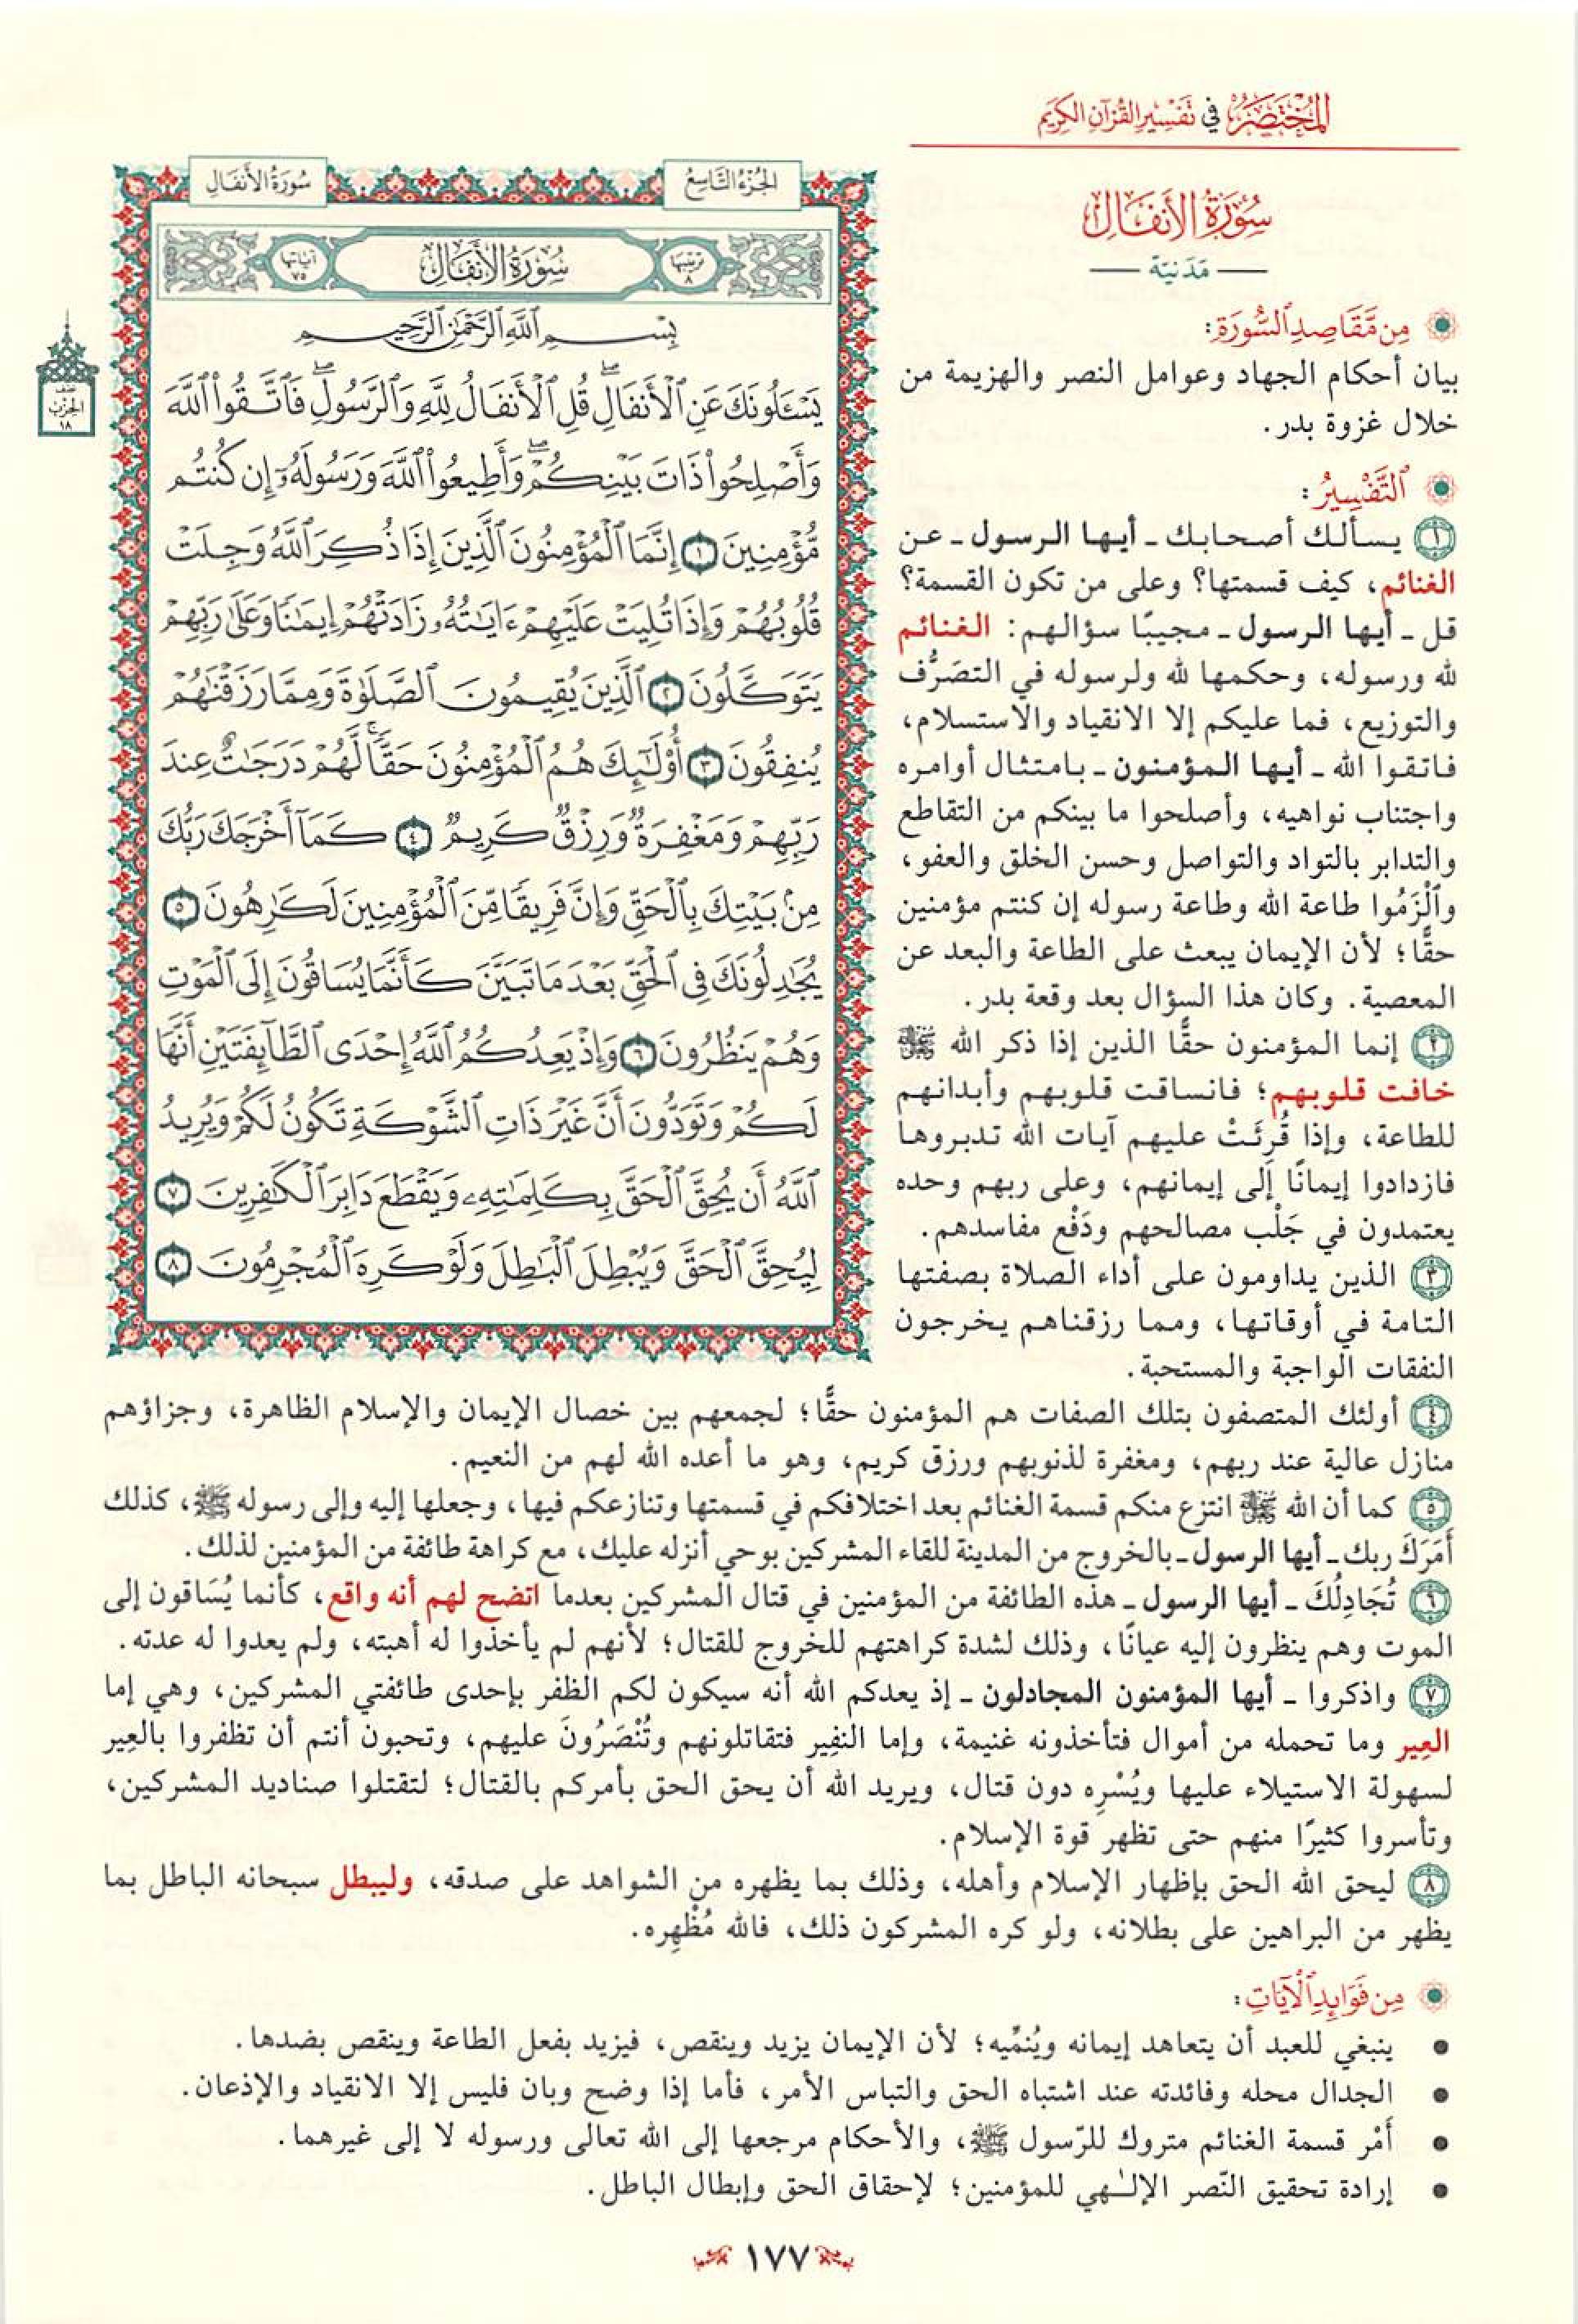 المختصر في تفسير القرآن الكريم
سورة الأنفال
الجزء التاسع
سُورَةُ الأَنفَالِ
مَدَنِيّة
ترتيبها ٨
سُورَةُ الأَنفَالِ
آياتها ٧٥
نصف الحزب ١٨
بِسْمِ ٱللَّهِ ٱلرَّحْمَٰنِ ٱلرَّحِيمِ
يَسْـَٔلُونَكَ عَنِ ٱلْأَنفَالِۖ قُلِ ٱلْأَنفَالُ لِلَّهِ وَٱلرَّسُولِۖ فَٱتَّقُوا۟ ٱللَّهَ
وَأَصْلِحُوا۟ ذَاتَ بَيْنِكُمْۖ وَأَطِيعُوا۟ ٱللَّهَ وَرَسُولَهُۥٓ إِن كُنتُم
مُّؤْمِنِينَ ١ إِنَّمَا ٱلْمُؤْمِنُونَ ٱلَّذِينَ إِذَا ذُكِرَ ٱللَّهُ وَجِلَتْ
قُلُوبُهُمْ وَإِذَا تُلِيَتْ عَلَيْهِمْ ءَايَٰتُهُۥ زَادَتْهُمْ إِيمَٰنًا وَعَلَىٰ رَبِّهِمْ
يَتَوَكَّلُونَ ٢ ٱلَّذِينَ يُقِيمُونَ ٱلصَّلَوٰةَ وَمِمَّا رَزَقْنَٰهُمْ
يُنفِقُونَ ٣ أُو۟لَٰٓئِكَ هُمُ ٱلْمُؤْمِنُونَ حَقًّاۚ لَّهُمْ دَرَجَٰتٌ عِندَ
رَبِّهِمْ وَمَغْفِرَةٌ وَرِزْقٌ كَرِيمٌ ٤ كَمَآ أَخْرَجَكَ رَبُّكَ
مِنۢ بَيْتِكَ بِٱلْحَقِّ وَإِنَّ فَرِيقًا مِّنَ ٱلْمُؤْمِنِينَ لَكَٰرِهُونَ ٥
يُجَٰدِلُونَكَ فِى ٱلْحَقِّ بَعْدَمَا تَبَيَّنَ كَأَنَّمَا يُسَاقُونَ إِلَى ٱلْمَوْتِ
وَهُمْ يَنظُرُونَ ٦ وَإِذْ يَعِدُكُمُ ٱللَّهُ إِحْدَى ٱلطَّآئِفَتَيْنِ أَنَّهَا
لَكُمْ وَتَوَدُّونَ أَنَّ غَيْرَ ذَاتِ ٱلشَّوْكَةِ تَكُونُ لَكُمْ وَيُرِيدُ
ٱللَّهُ أَن يُحِقَّ ٱلْحَقَّ بِكَلِمَٰتِهِۦ وَيَقْطَعَ دَابِرَ ٱلْكَٰفِرِينَ ٧
لِيُحِقَّ ٱلْحَقَّ وَيُبْطِلَ ٱلْبَٰطِلَ وَلَوْ كَرِهَ ٱلْمُجْرِمُونَ ٨
من مقاصد السورة:
بيان أحكام الجهاد وعوامل النصر والهزيمة من
خلال غزوة بدر.
التفسير:
١ يسألك أصحابك ـ أيها الرسول ـ عن
الغنائم، كيف قسمتها؟ وعلى من تكون القسمة؟
قل ـ أيها الرسول ـ مجيبًا سؤالهم: الغنائم
لله ورسوله، وحكمها لله ولرسوله في التصَرُّف
والتوزيع، فما عليكم إلا الانقياد والاستسلام،
فاتقوا الله ـ أيها المؤمنون ـ بامتثال أوامره
واجتناب نواهيه، وأصلحوا ما بينكم من التقاطع
والتدابر بالتواد والتواصل وحسن الخلق والعفو،
والْزَمُوا طاعة الله وطاعة رسوله إن كنتم مؤمنين
حقًّا؛ لأن الإيمان يبعث على الطاعة والبعد عن
المعصية. وكان هذا السؤال بعد وقعة بدر.
٢ إنما المؤمنون حقًّا الذين إذا ذكر الله ﷻ
خافت قلوبهم؛ فانساقت قلوبهم وأبدانهم
للطاعة، وإذا قُرِئَتْ عليهم آيات الله تدبروها
فازدادوا إيمانًا إلى إيمانهم، وعلى ربهم وحده
يعتمدون في جَلْب مصالحهم ودَفْع مفاسدهم.
٣ الذين يداومون على أداء الصلاة بصفتها
التامة في أوقاتها، ومما رزقناهم يخرجون
النفقات الواجبة والمستحبة.
٤ أولئك المتصفون بتلك الصفات هم المؤمنون حقًّا؛ لجمعهم بين خصال الإيمان والإسلام الظاهرة، وجزاؤهم
منازل عالية عند ربهم، ومغفرة لذنوبهم ورزق كريم، وهو ما أعده الله لهم من النعيم.
٥ كما أن الله ﷻ انتزع منكم قسمة الغنائم بعد اختلافكم في قسمتها وتنازعكم فيها، وجعلها إليه وإلى رسوله ﷺ، كذلك
أَمَرَكَ ربك ـ أيها الرسول ـ بالخروج من المدينة للقاء المشركين بوحي أنزله عليك، مع كراهة طائفة من المؤمنين لذلك.
٦ تُجَادِلُكَ ـ أيها الرسول ـ هذه الطائفة من المؤمنين في قتال المشركين بعدما اتضح لهم أنه واقع، كأنما يُسَاقون إلى
الموت وهم ينظرون إليه عيانًا، وذلك لشدة كراهتهم للخروج للقتال؛ لأنهم لم يأخذوا له أهبته، ولم يعدوا له عدته.
٧ واذكروا ـ أيها المؤمنون المجادلون ـ إذ يعدكم الله أنه سيكون لكم الظفر بإحدى طائفتي المشركين، وهي إما
العِير وما تحمله من أموال فتأخذونه غنيمة، وإما النفِير فتقاتلونهم وتُنْصَرُونَ عليهم، وتحبون أنتم أن تظفروا بالعِير
لسهولة الاستيلاء عليها ويُسْرِه دون قتال، ويريد الله أن يحق الحق بأمركم بالقتال؛ لتقتلوا صناديد المشركين،
وتأسروا كثيرًا منهم حتى تظهر قوة الإسلام.
٨ ليحق الله الحق بإظهار الإسلام وأهله، وذلك بما يظهره من الشواهد على صدقه، وليبطل سبحانه الباطل بما
يظهر من البراهين على بطلانه، ولو كره المشركون ذلك، فالله مُظْهِره.
من فوائد الآيات:
• ينبغي للعبد أن يتعاهد إيمانه ويُنمِّيه؛ لأن الإيمان يزيد وينقص، فيزيد بفعل الطاعة وينقص بضدها.
• الجدال محله وفائدته عند اشتباه الحق والتباس الأمر، فأما إذا وضح وبان فليس إلا الانقياد والإذعان.
• أَمْر قسمة الغنائم متروك للرّسول ﷺ، والأحكام مرجعها إلى الله تعالى ورسوله لا إلى غيرهما.
• إرادة تحقيق النّصر الإلـٰهي للمؤمنين؛ لإحقاق الحق وإبطال الباطل.
١٧٧